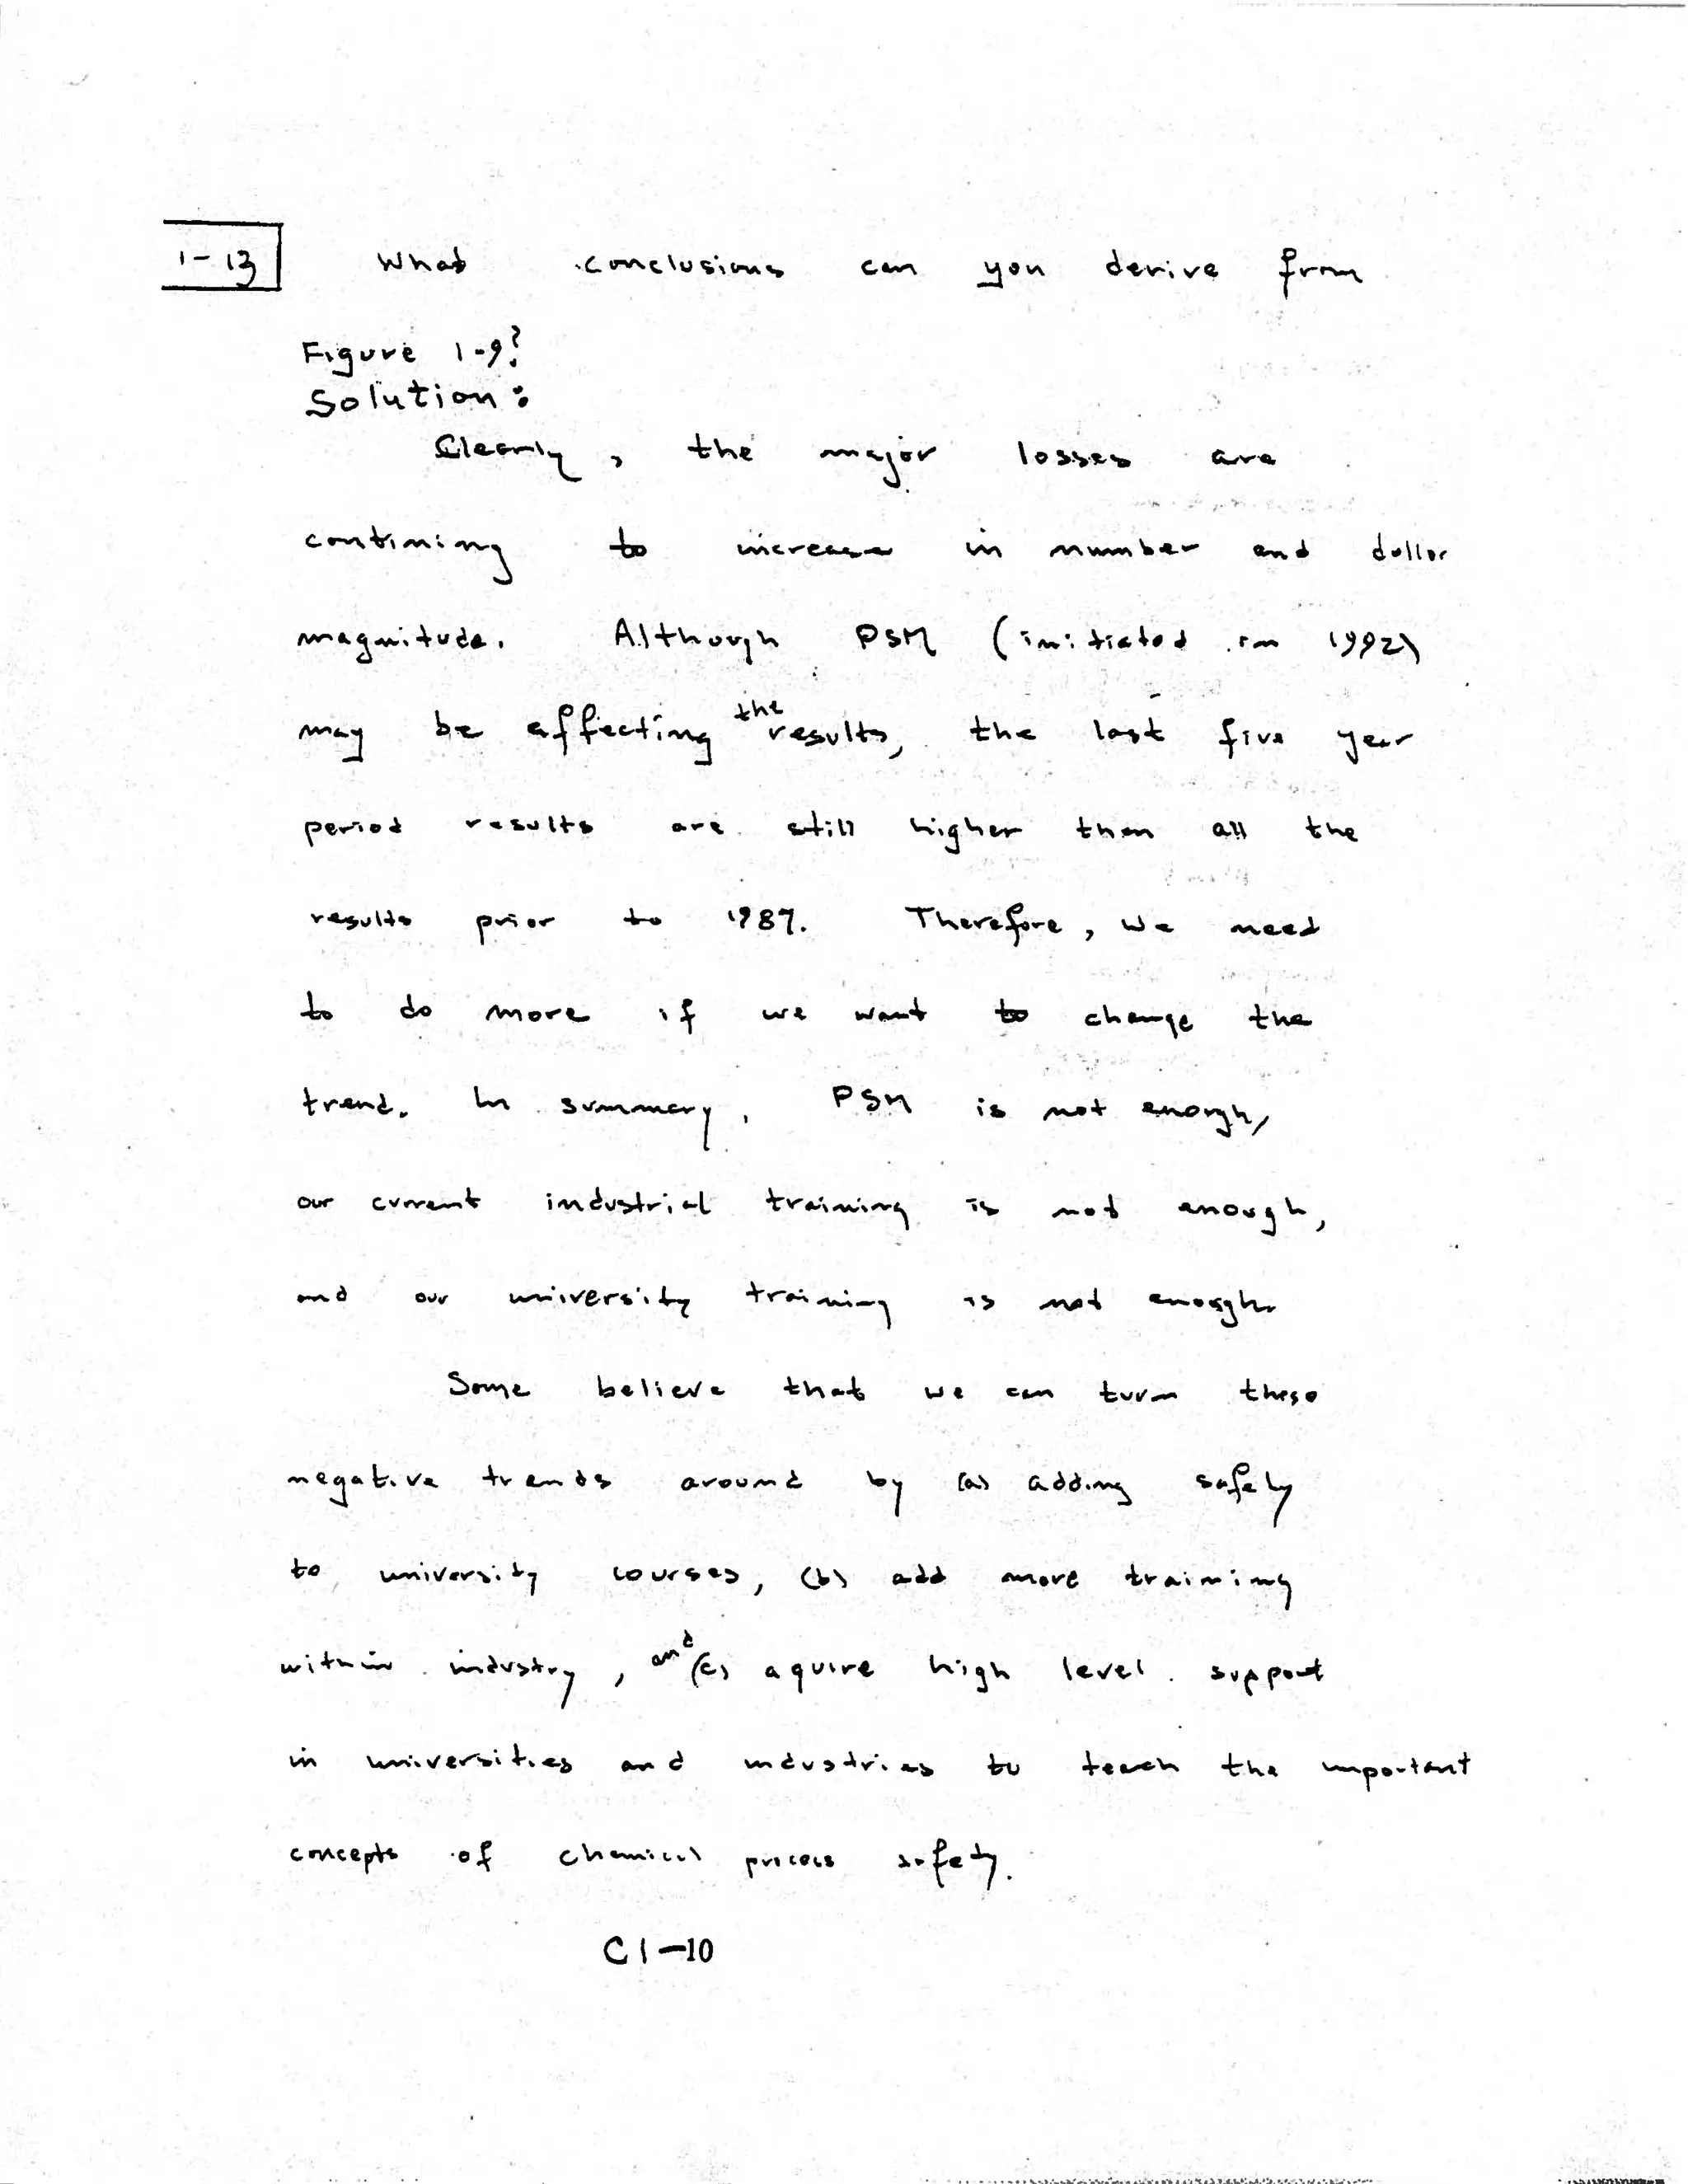 1-13 What conclusions can you derive from
Figure 1-9?
Solution:
Clearly, the major losses are
continuing to increase in number and dollar
magnitude. Although PSM (initiated in 1992)
may be affecting the results, the last five year
period results are still higher than all the
results prior to 1987. Therefore, we need
to do more if we want to change the
trend. In summary, PSM is not enough,
our current industrial training is not enough,
and our university training is not enough.
Some believe that we can turn these
negative trends around by (a) adding safety
to university courses, (b) add more training
within industry, and (c) aquire high level support
in universities and industries to teach the important
concepts of chemical process safety.
C1-10